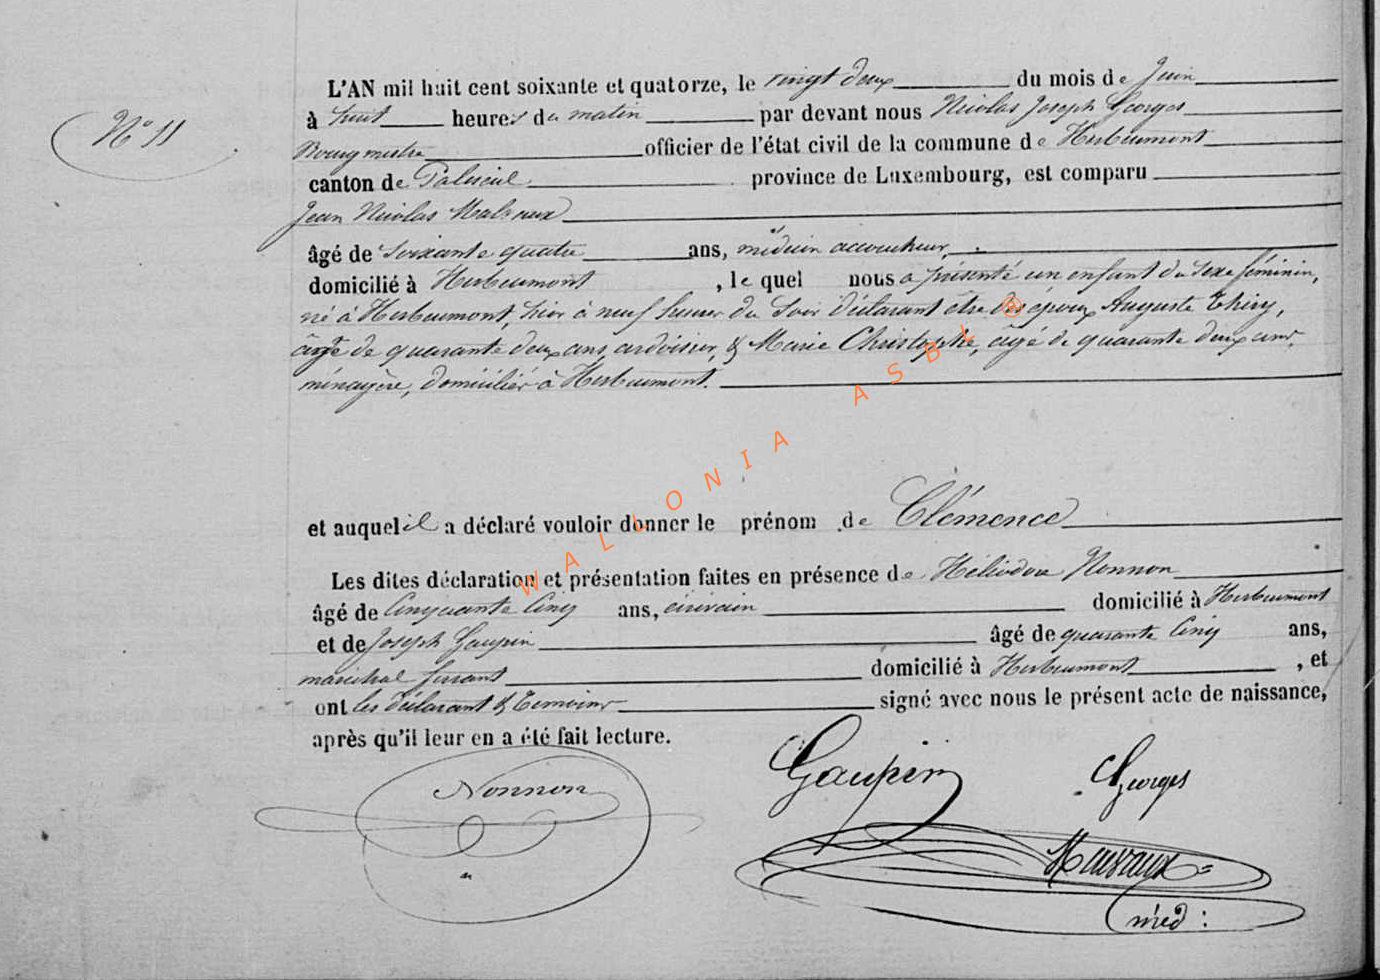 N° 11
L'AN mil huit cent soixante et quatorze, le vingt deux du mois de Juin
à huit heures du matin par devant nous Nicolas Joseph Georges
Bourgmestre officier de l'état civil de la commune de Herbeumont
canton de Paliseul province de Luxembourg, est comparu
Jean Nicolas
âgé de Soixante quatre ans, médecin accoucheur,
domicilié à Herbeumont, le quel nous a présenté un enfant du Sexe féminin,
né à Herbeumont, hier à neuf heures du Soir déclarant être des époux Auguste Thiry,
âgé de quarante deux ans, ardoisier, & Marie Christophe, âgée de quarante deux ans,
ménagère, domiciliés à Herbeumont.
et auquel il a déclaré vouloir donner le prénom de Clémence
Les dites déclaration et présentation faites en présence de Héliodore Nonnon
âgé de Cinquante Cinq ans, écrivain domicilié à Herbeumont
et de Joseph Gaupin âgé de quarante Cinq ans,
maréchal ferrant domicilié à Herbeumont, et
ont les déclarant & témoins signé avec nous le présent acte de naissance,
après qu'il leur en a été fait lecture.
Nonnon Gaupin Georges
méd :
WALLONIA ASBL ®